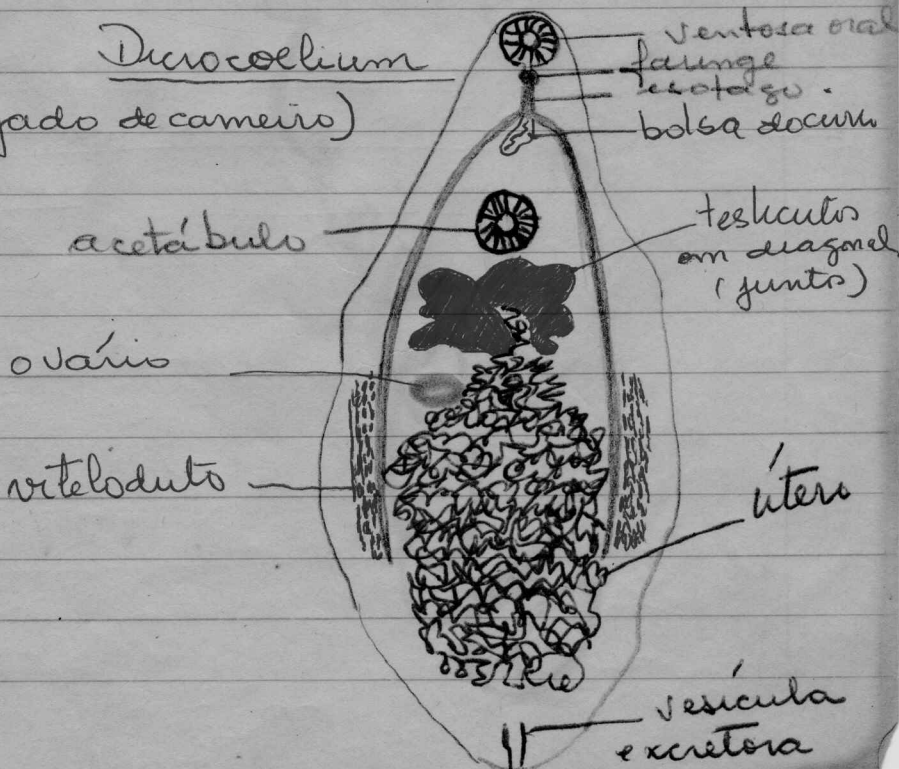 Dicrocoelium
gado de carneiro)
ventosa oral
faringe
esofago.
bolsa do cirro
acetábulo
testículos
em diagonal
(juntos)
ovário
viteloduto
útero
vesícula
excretora